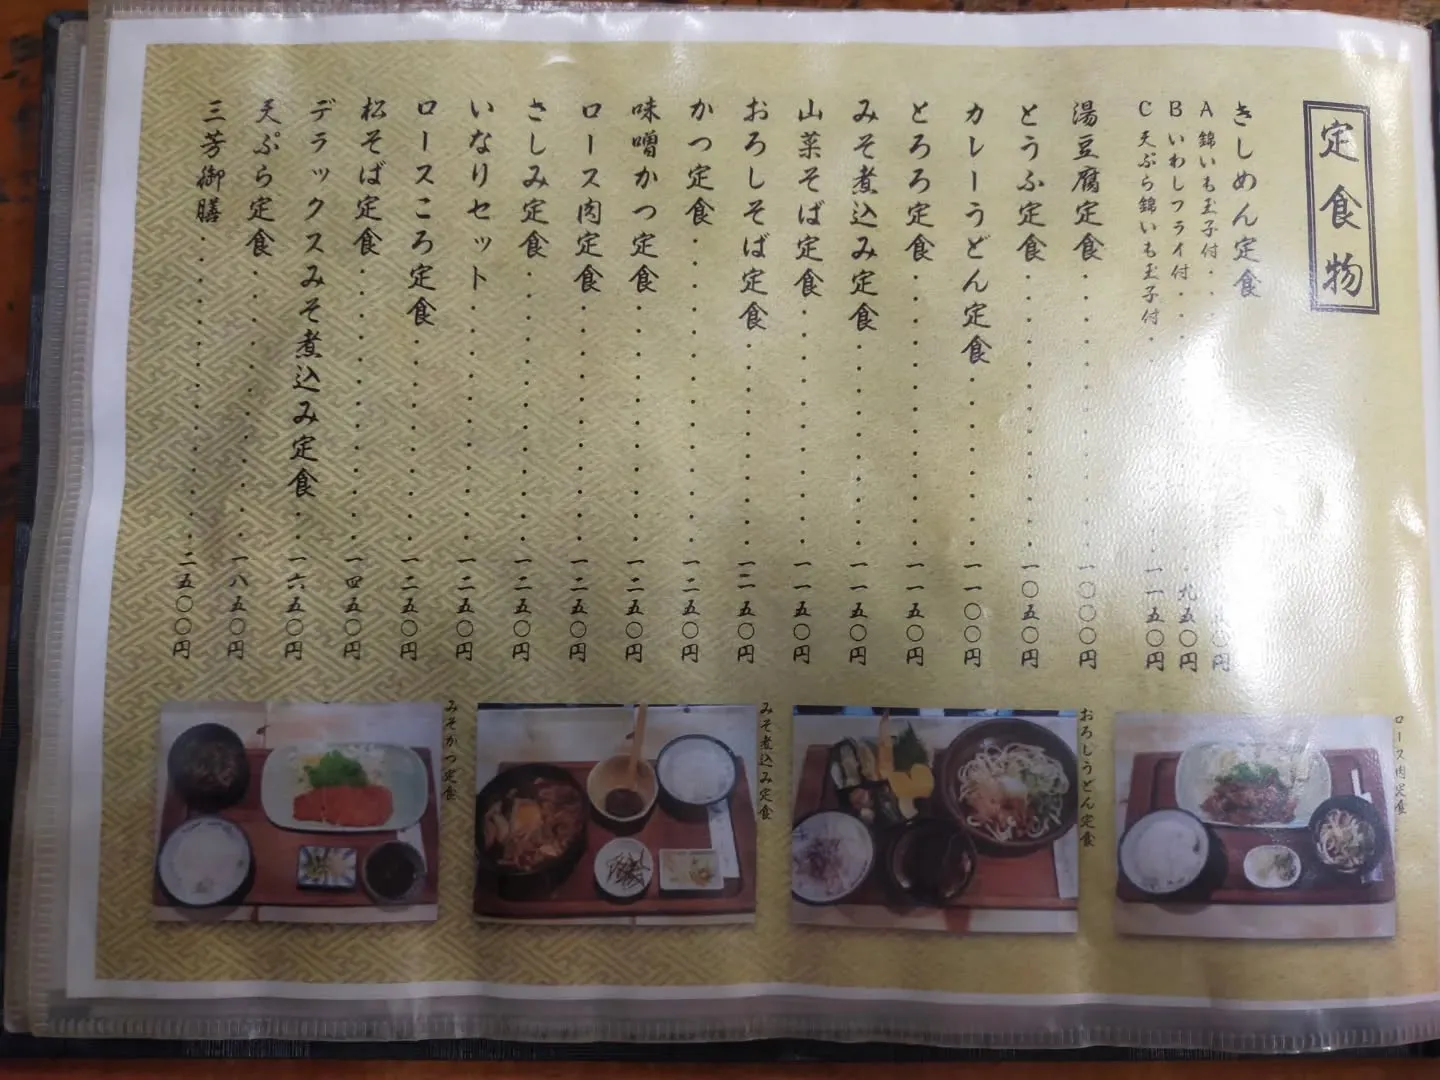 定食物
きしめん定食
A 錦いも玉子付・・・・・・五〇円
B いわしフライ付・・・・・・九五〇円
C 天ぷら錦いも玉子付・・・・・・一一五〇円
湯豆腐定食・・・・・・一〇〇〇円
とうふ定食・・・・・・一〇五〇円
カレーうどん定食・・・・・・一一〇〇円
とろろ定食・・・・・・一一五〇円
みそ煮込み定食・・・・・・一一五〇円
山菜そば定食・・・・・・一一五〇円
おろしそば定食・・・・・・一一五〇円
かつ定食・・・・・・一二五〇円
味噌かつ定食・・・・・・一二五〇円
ロース肉定食・・・・・・一二五〇円
さしみ定食・・・・・・一二五〇円
いなりセット・・・・・・一二五〇円
ロースころ定食・・・・・・一二五〇円
松そば定食・・・・・・一四五〇円
デラックスみそ煮込み定食・・一六五〇円
天ぷら定食・・・・・・一八五〇円
三芳御膳・・・・・・二五〇〇円
ロース肉定食
おろしうどん定食
みそ煮込み定食
みそかつ定食